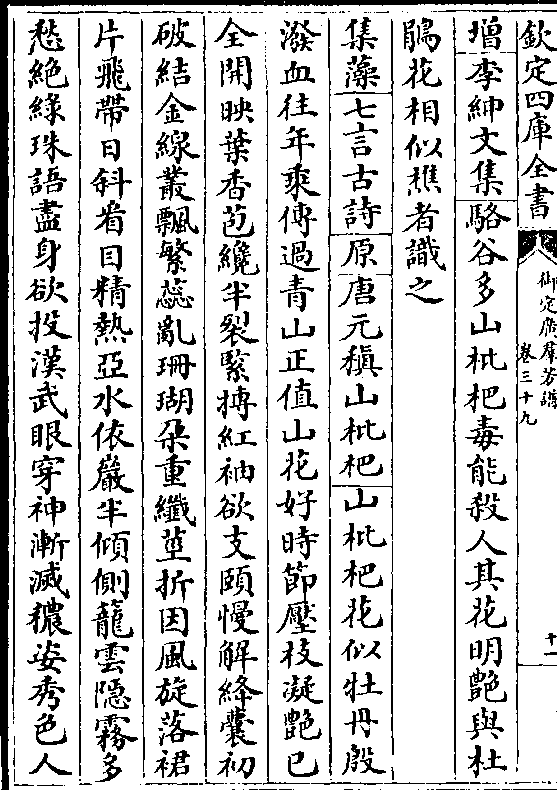 欽定四庫全書
御定廣羣芳譜
卷三十九
十一
增李紳文集駱谷多山枇杷毒能殺人其花明艷與杜
鵑花相似樵者識之
集藻七言古詩原唐元稹山枇杷山枇杷花似牡丹殷
潑血往年乘傳過青山正值山花好時節壓枝凝艷已
全開映葉香苞纔半裂緊搏紅袖欲支頤慢解絳囊初
破結金線叢飄繁蕊亂珊瑚朶重纖莖折因風旋落裙
片飛帶日斜看目精熱亞水依巖半傾側籠雲隱霧多
愁絶綠珠語盡身欲投漢武眼穿神漸滅穠姿秀色人